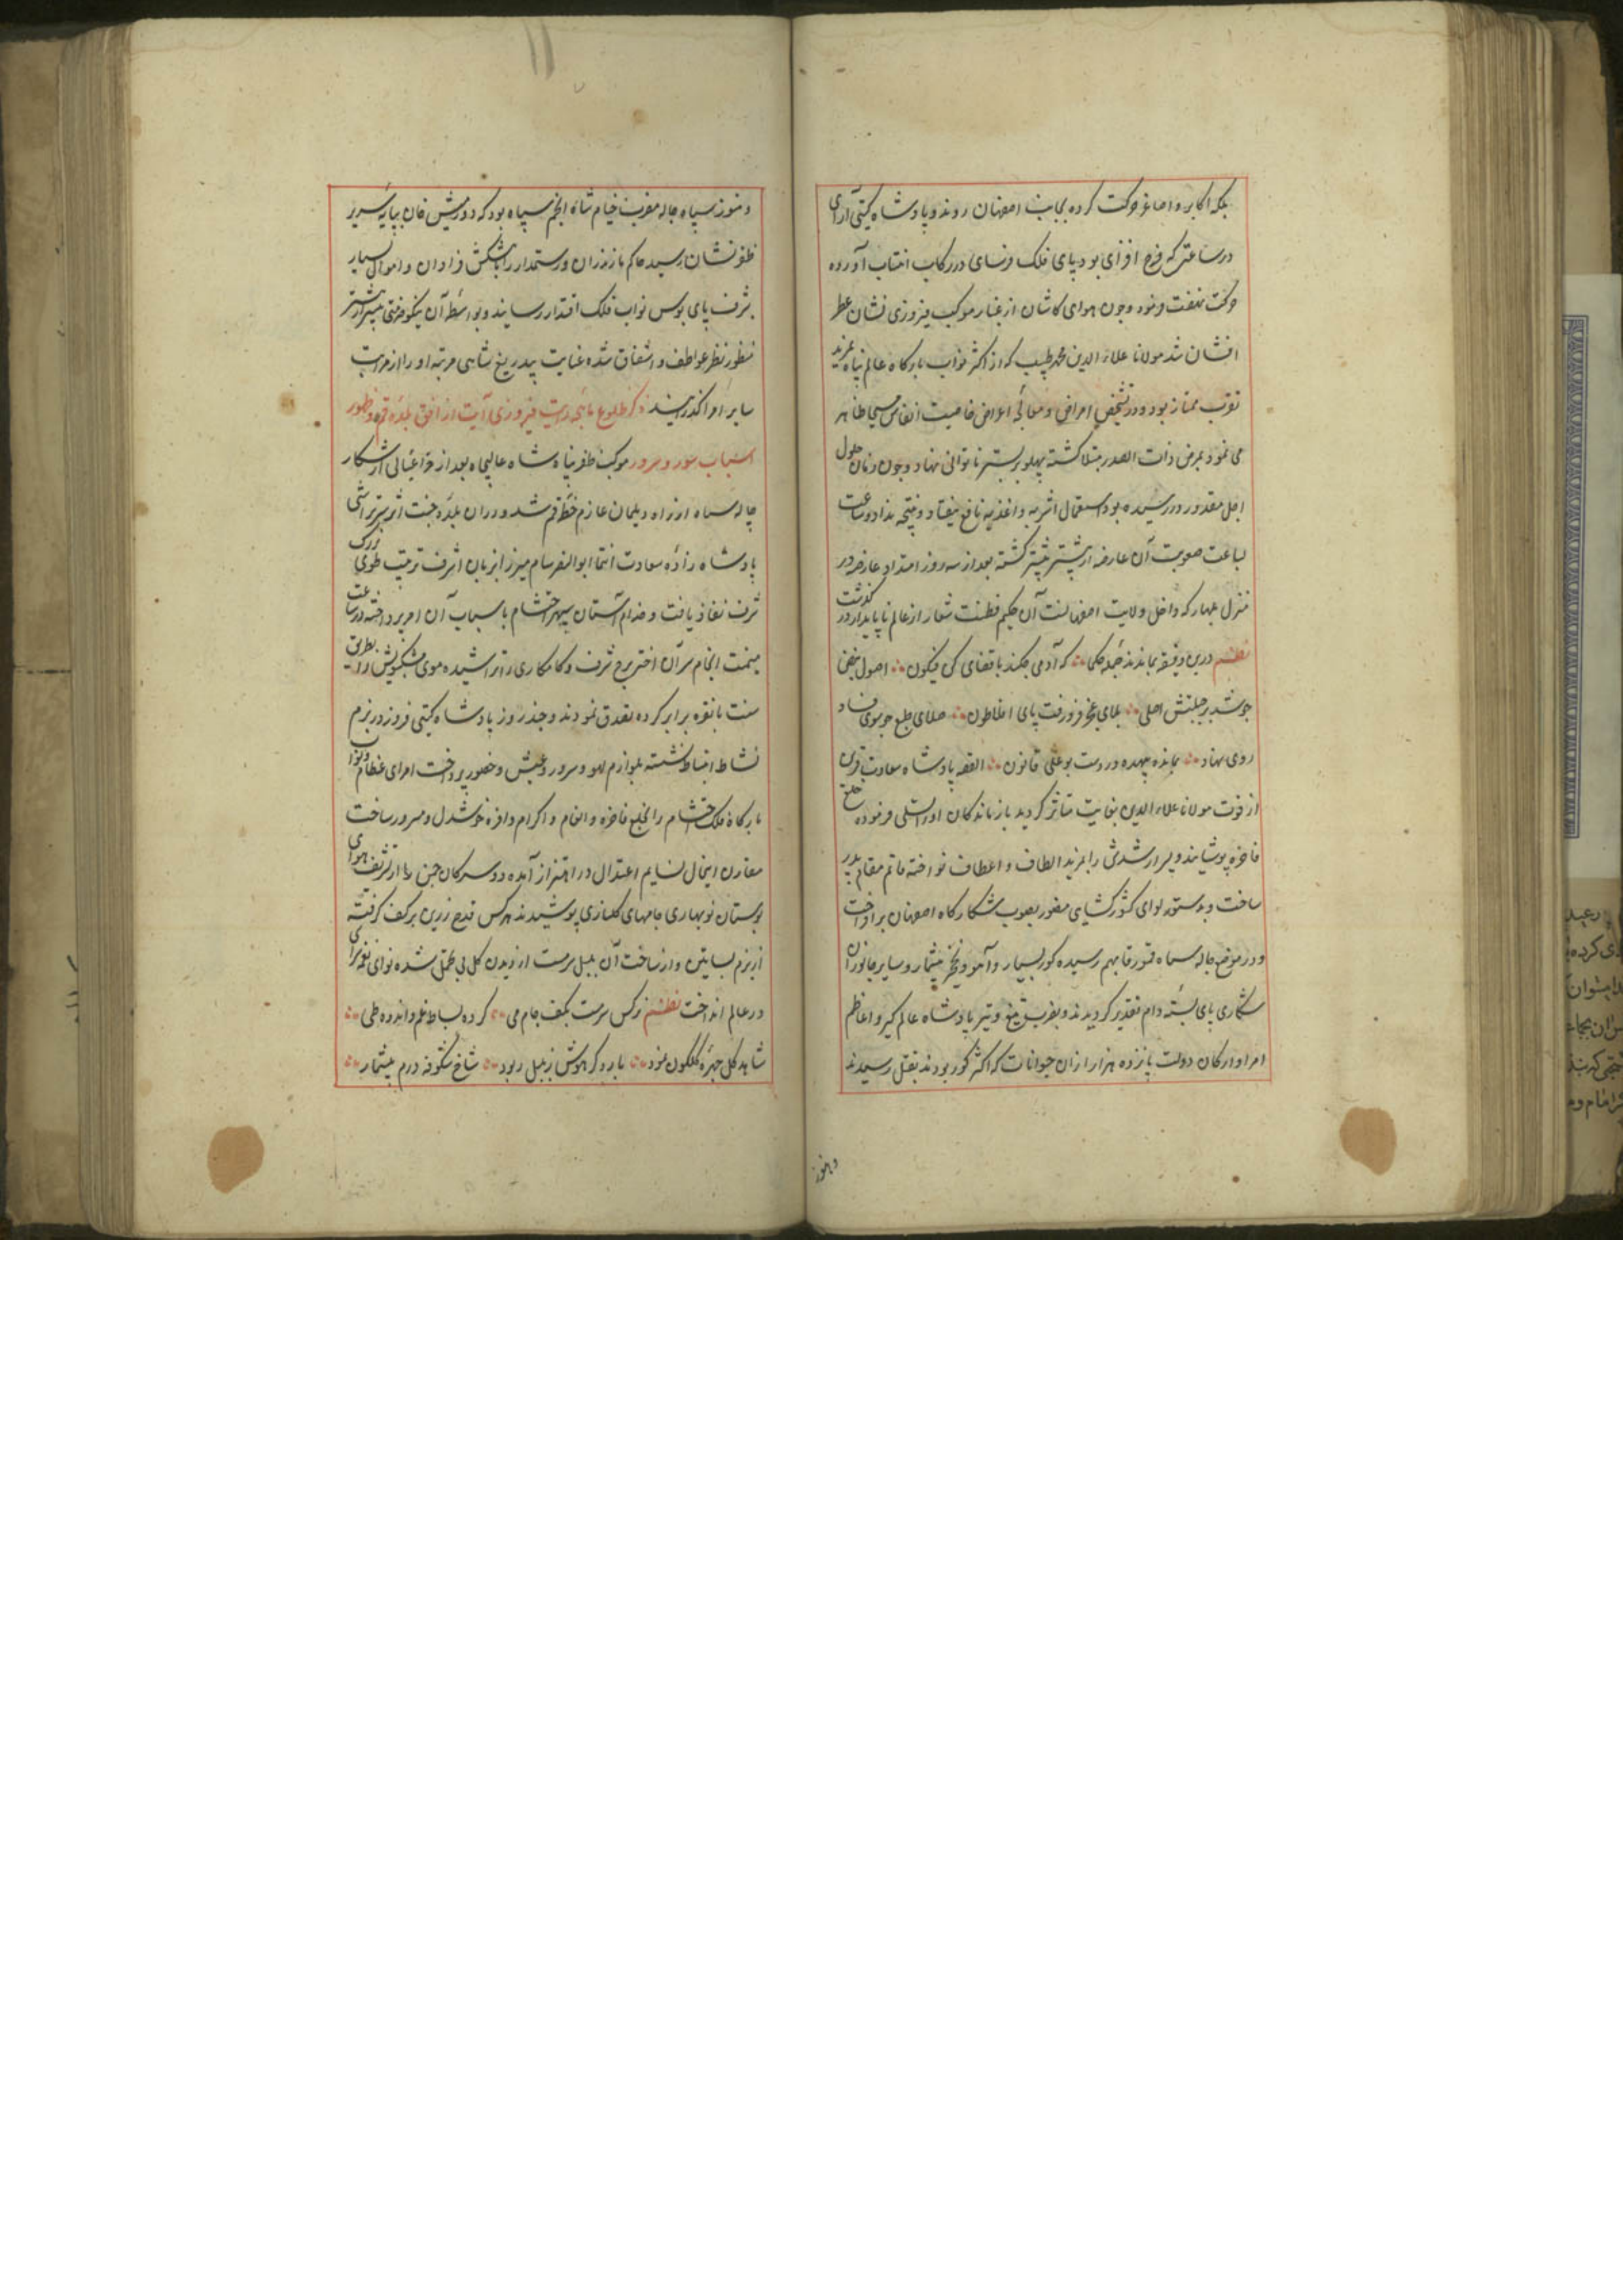 بلکه اکابر و اصاغر حرکت کرده بجانب اصفهان روند و پادشاه کیتی آرای
در ساعتی که فرح افزای بود پای فلک فرسای در رکاب انتساب آورده
حرکت نهضت فرمود و چون هوای کاشان از غبار موکب فیروزی نشان عطر
افشان شد مولانا علاء الدین محمد طبیب که از اکثر نواب بارکاه عالم پناه بمزید
تقرب ممتاز بود و در تشخیص امراض و معالجه اعراض خاصیت انفاس مسیحا ظاهر
می نمود بمرض ذات الصدر مبتلا کشته پهلو بر بستر ناتوانی نهاد و چون زمان حلول
اجل مقدور در رسیده بود استعمال اشربه و اغذیه نافع نیفتاد و نتیجه نداد و ساعت
بساعت صعوبت آن عارضه از پیشتر بیشتر کشته بعد از سه روز امتداد عارضه در
منزل که داخل ولایت اصفهانست آن حکیم فطنت شعار از عالم ناپایدار در کذشت
نظم درین دقیقه بماندند جمله حکما که آدمی چکند با قضای کن فیکون اصول نبض
چو شد بر جنبش اصلی بلای عجز فرو رفت پای افلاطون صلاح طبع چو سوی فساد
روی نهاد بماند بیهده در دست بوعلی قانون القصه پادشاه سعادت قرین
از فوت مولانا علاء الدین بغایت متاثر کردید بازماندکان او را تسلی فرموده خلع
فاخره پوشانید و پسر ارشدش را بمزید الطاف و اعطاف نواخته قائم مقام پدر
ساخت و بدستور لوای کشورکشای منصور بصوب شکارکاه اصفهان برافراخت
و در موضع چاله سیاه قمورقا بهم رسیده کور بسیار و آهو و نخجیر بیشمار و سایر جانوران
شکاری پای بسته دام تقدیر کردیدند و بضرب تیغ و تیر پادشاه عالم کیر و اعاظم
امرا و ارکان دولت پانزده هزار از آن حیوانات که اکثر کور بودند بقتل رسیدند
و هنوز
و هنوز سیاه چاله مضرب خیام شاه انجم سپاه بود که درویش خان بپایه سریر
ظفر نشان رسید حاکم مازندران و رستمدار را با پیشکش فراوان و اموال بسیار
بشرف پای بوس نواب فلک اقتدار رسانید و بواسطه آن نیکو خدمتی بیشتر از پیشتر
منظور نظر عواطف و اشفاق شده عنایت بیدریغ شاهی مرتبه او را از مراتب
سایر امرا کذرانید ذکر طلوع ماهچه رایت فیروزی آیت از افق بلده قم و ظهور
اسباب سور و سرور موکب ظفر پناه شاه عالیجاه بعد از فراغبالی از شکار
چاله سیاه از راه دیلمان عازم خطه قم شد و در آن بلده جنت اثر سر تراشی
پادشاه زاده سعادت انتما ابوالنصر سام میرزا فرمان اشرف ترتیب طوی بزرک
شرف نفاذ یافت و خدام آستان سپهر احتشام باسباب آن امر پرداخته در ساعت
میمنت انجام سر آن اختر برج شرف و کامکاری را تراشیده موی مشکبویش را بطریق
سنت با نقره برابر کرده تصدق نمودند و چند روز پادشاه کیتی فروز در بزم
نشاط انبساط نشسته بلوازم لهو و سرور و عیش و حضور پرداخت امرای عظام و نواب
بارکاه فلک احتشام را بخلع فاخره و انعام و اکرام وافره خوشدل و مسرور ساخت
مقارن اینحال نسایم اعتدال در اهتزاز آمده عروسکان چمن را از تشریف هوای
بوستان نوبهاری جامهای کلناری پوشیدند نرکس قدح زرین بر کف کرفته
از بزم بساتین و از ساخت آن بلبل سرمست از دیدن کل بی تحمل شده نوای نغمه سرای
در عالم انداخت نظم نرکس سرمست بکف جام می کرده بساط غم و اندوه طی
شاهد کل چهره کلکون نمود بار دکر هوش ز بلبل ربود شاخ شکوفه درم بیشمار